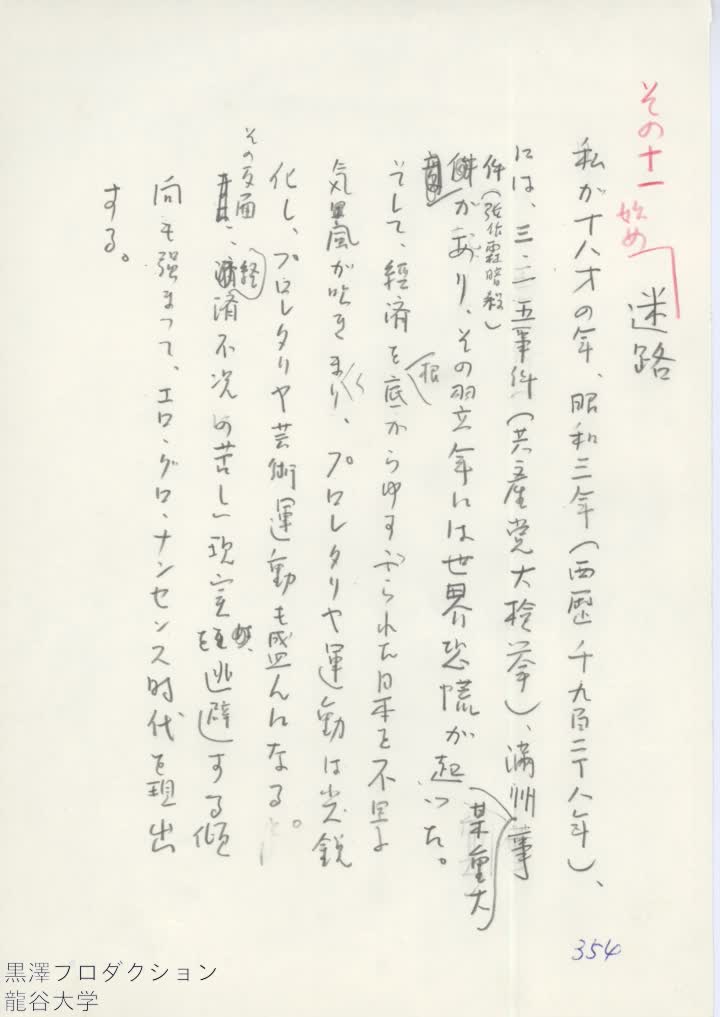 その十一 始め
迷路
私が十八才の年、昭和三年(西歴千九百二十八年)、
には、三・一五事件(共産党大検挙)、満州
某重大
事
件(張作霖暗殺)
があり、その翌年には世界恐慌が起った。
そして、経済を底
根
からゆすぶられた日本を不景
気風が吹きまくり、プロレタリヤ運動は尖鋭
化し、プロレタリヤ芸術運動も盛んになる。
その反面
、経済不況の苦しい現実を逃避する傾
向も強まって、エロ・グロ・ナンセンス時代を現出
する。
354
黒澤プロダクション
龍谷大学